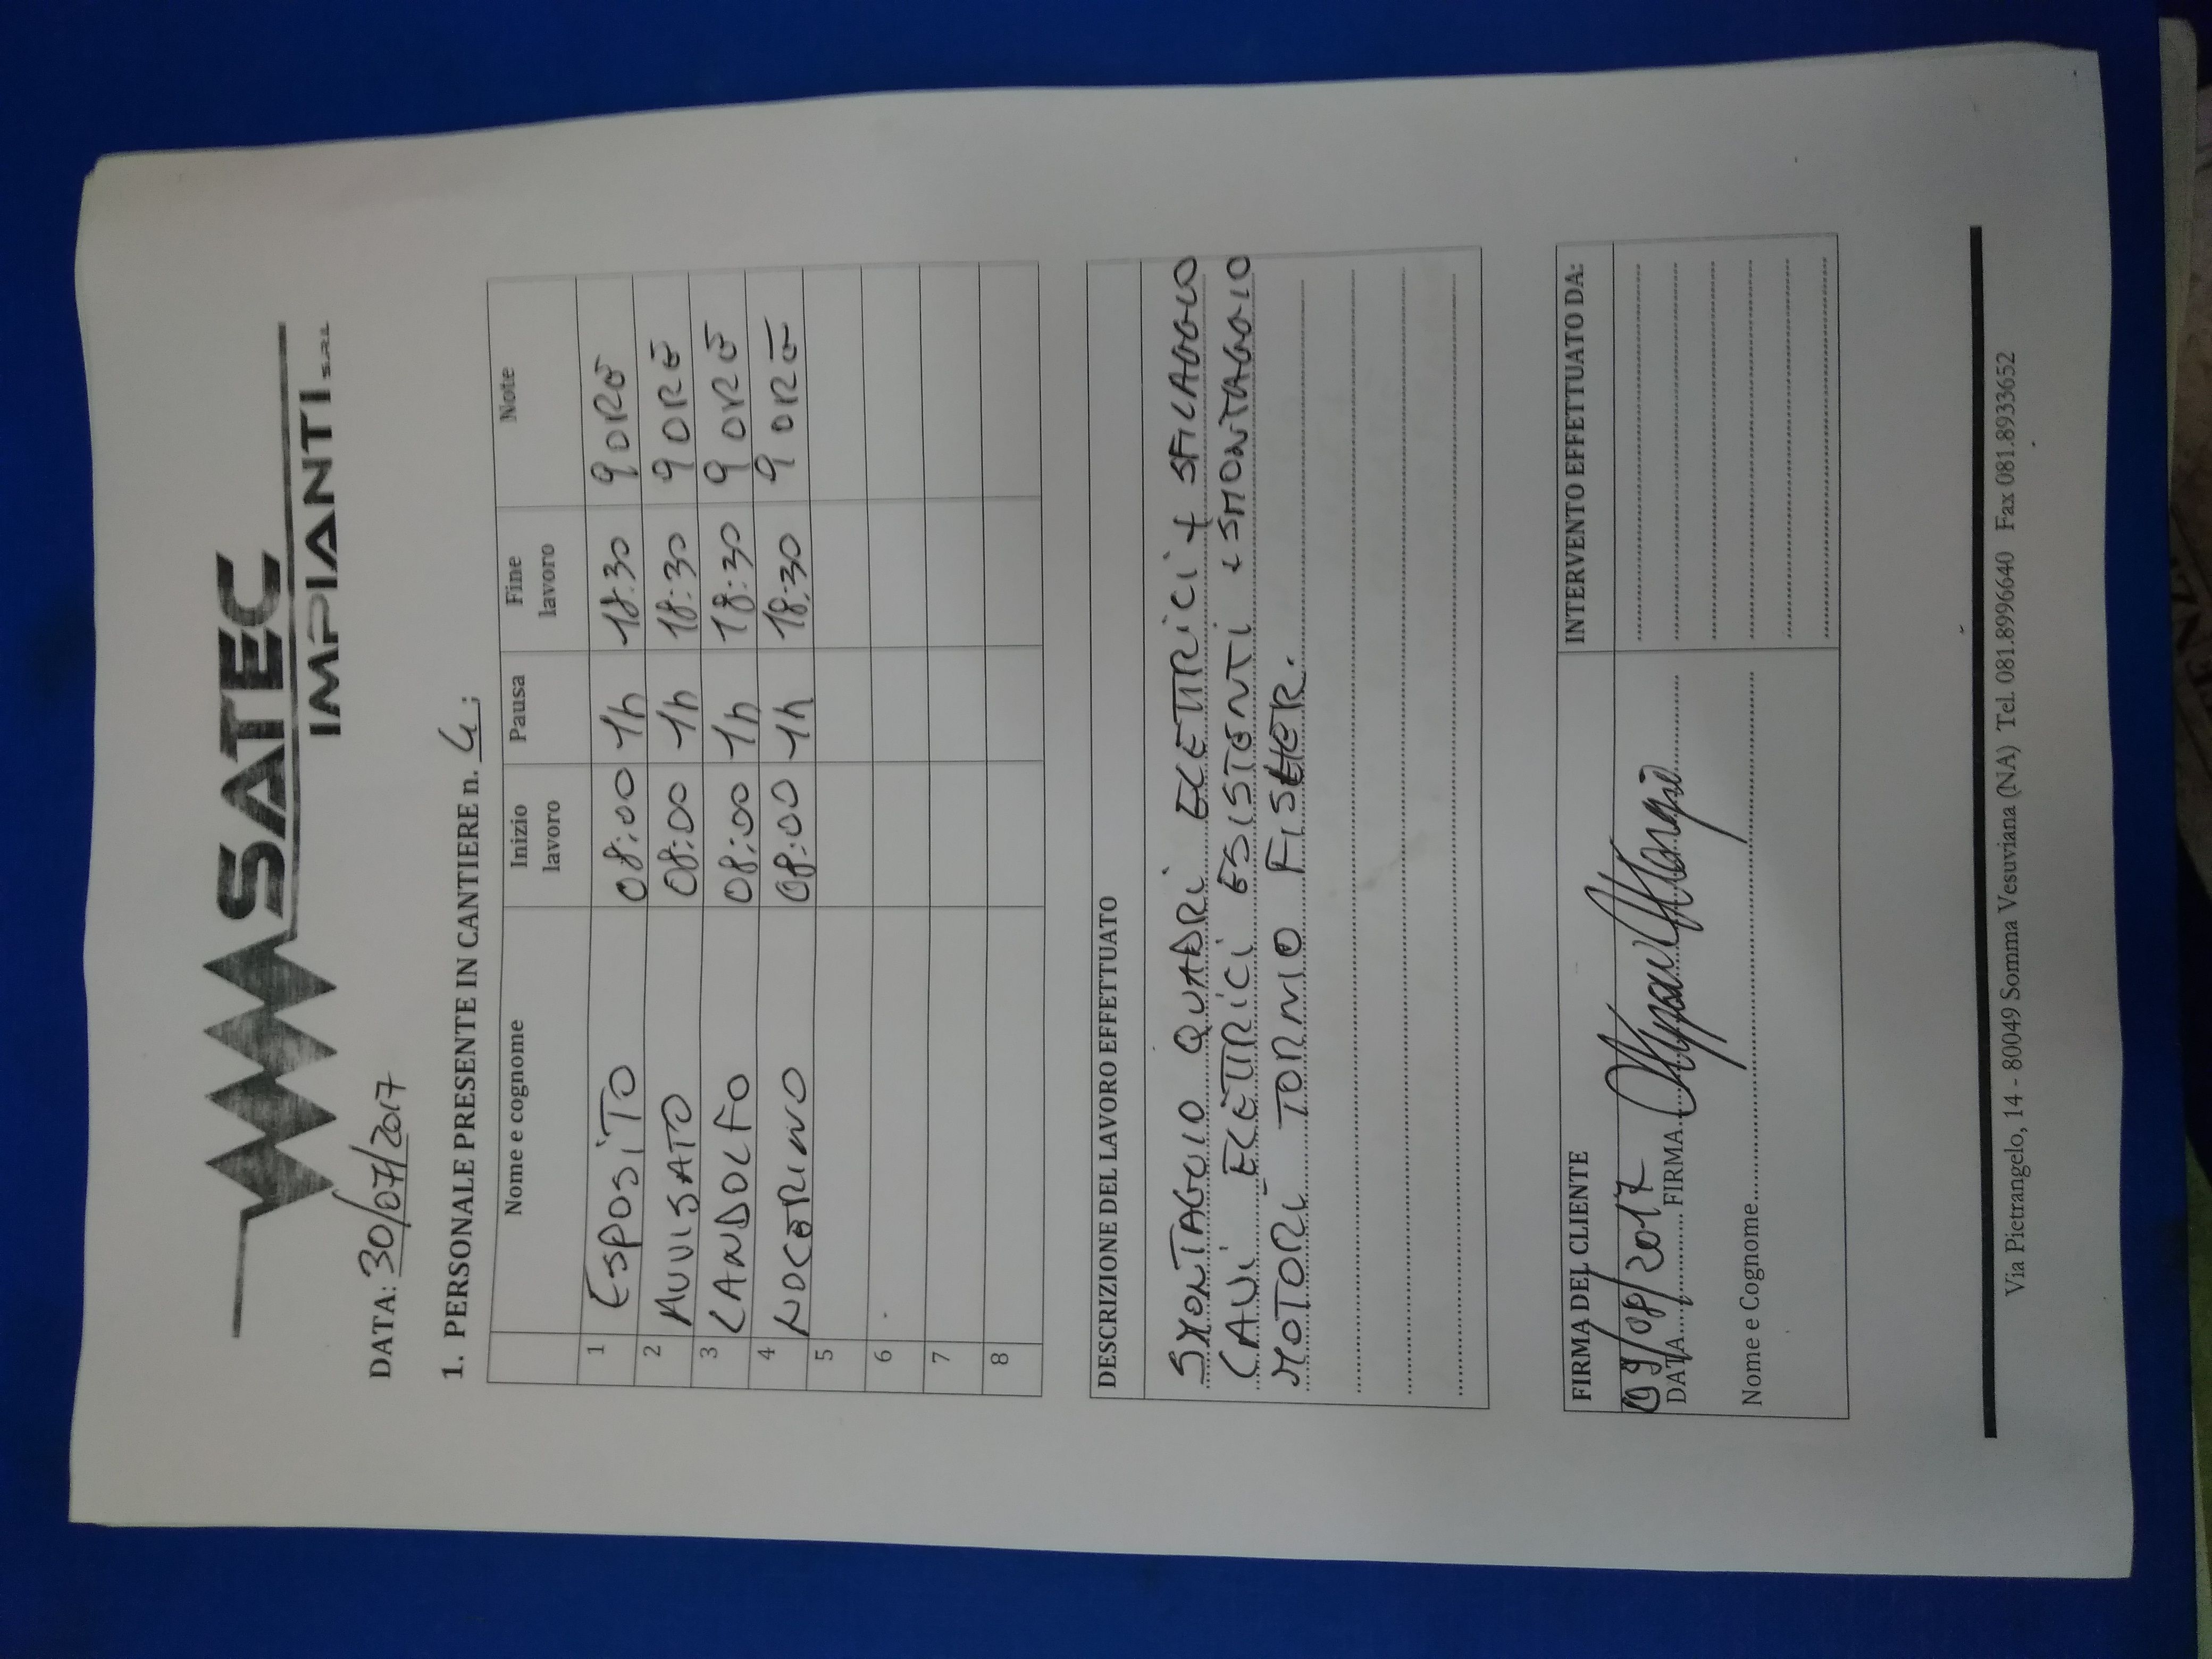 SATEC
IMPIANTI S.R.L.
DATA: 30/07/2017
1. PERSONALE PRESENTE IN CANTIERE n. 4 ;
Nome e cognome Inizio lavoro Pausa Fine lavoro Note
1 ESPOSITO 08:00 1h 18:30 9 ORE
2 AUVISATO 08:00 1h 18:30 9 ORE
3 LANDOLFO 08:00 1h 18:30 9 ORE
4 NOCERINO 08:00 1h 18:30 9 ORE
5
6
7
8
DESCRIZIONE DEL LAVORO EFFETTUATO
SMONTAGGIO QUADRI ELETTRICI + SFILAGGIO
CAVI ELETTRICI ESISTENTI + SMONTAGGIO
MOTORI TORNIO FISHER.
FIRMA DEL CLIENTE INTERVENTO EFFETTUATO DA:
09/08/2017
DATA FIRMA
Nome e Cognome
Via Pietrangelo, 14 - 80049 Somma Vesuviana (NA) Tel. 081.8996640 Fax 081.8933652